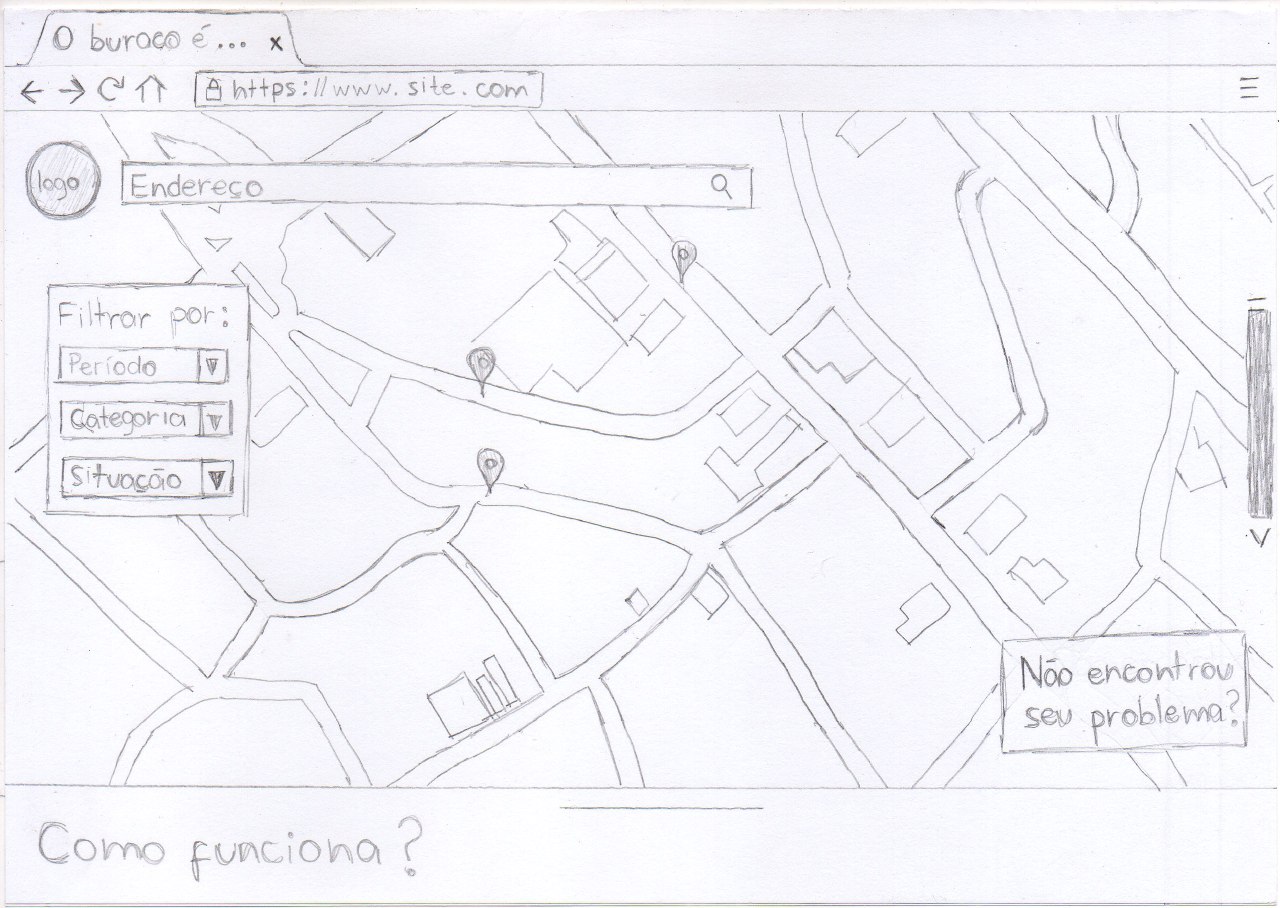 O buraco é... x
https://www.site.com
logo
Endereço
Filtrar por:
Período
Categoria
Situação
Não encontrou
seu problema?
Como funciona?